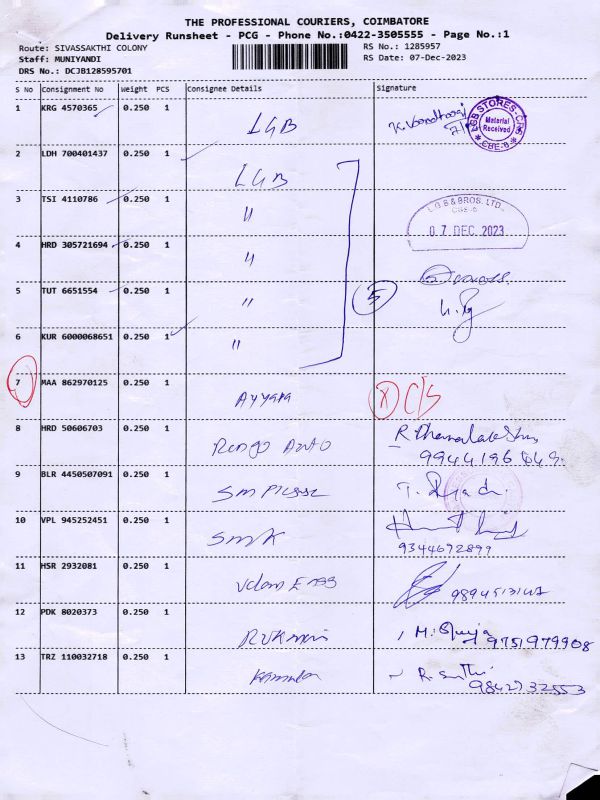 THE PROFESSIONAL COURIERS, COIMBATORE
Delivery Runsheet - PCG - Phone No.:0422-3505555 - Page No.:1
Route: SIVASSAKTHI COLONY RS No.: 1285957
Staff: MUNIYANDI RS Date: 07-Dec-2023
DRS No.: DCJB128595701
S No Consignment No Weight PCS Consignee Details Signature
1 KRG 4570365 0.250 1 LGB
LGB STORES-CBE
Material Received
CBE-B
2 LDH 700401437 0.250 1 LGB
3 TSI 4110786 0.250 1 "
L.G.B & BROS. LTD.
CBE-6
07 DEC 2023
4 HRD 305721694 0.250 1 "
5 TUT 6651554 0.250 1 " 5
6 KUR 6000068651 0.250 1 "
7 MAA 862970125 0.250 1 Ayyapa X C/S
8 HRD 50606703 0.250 1
9 BLR 4450507091 0.250 1
10 VPL 945252451 0.250 1 SMK
9344692899
11 HSR 2932081 0.250 1
12 PDK 8020373 0.250 1 9751979908
13 TRZ 110032718 0.250 1 Kamala
9842732553